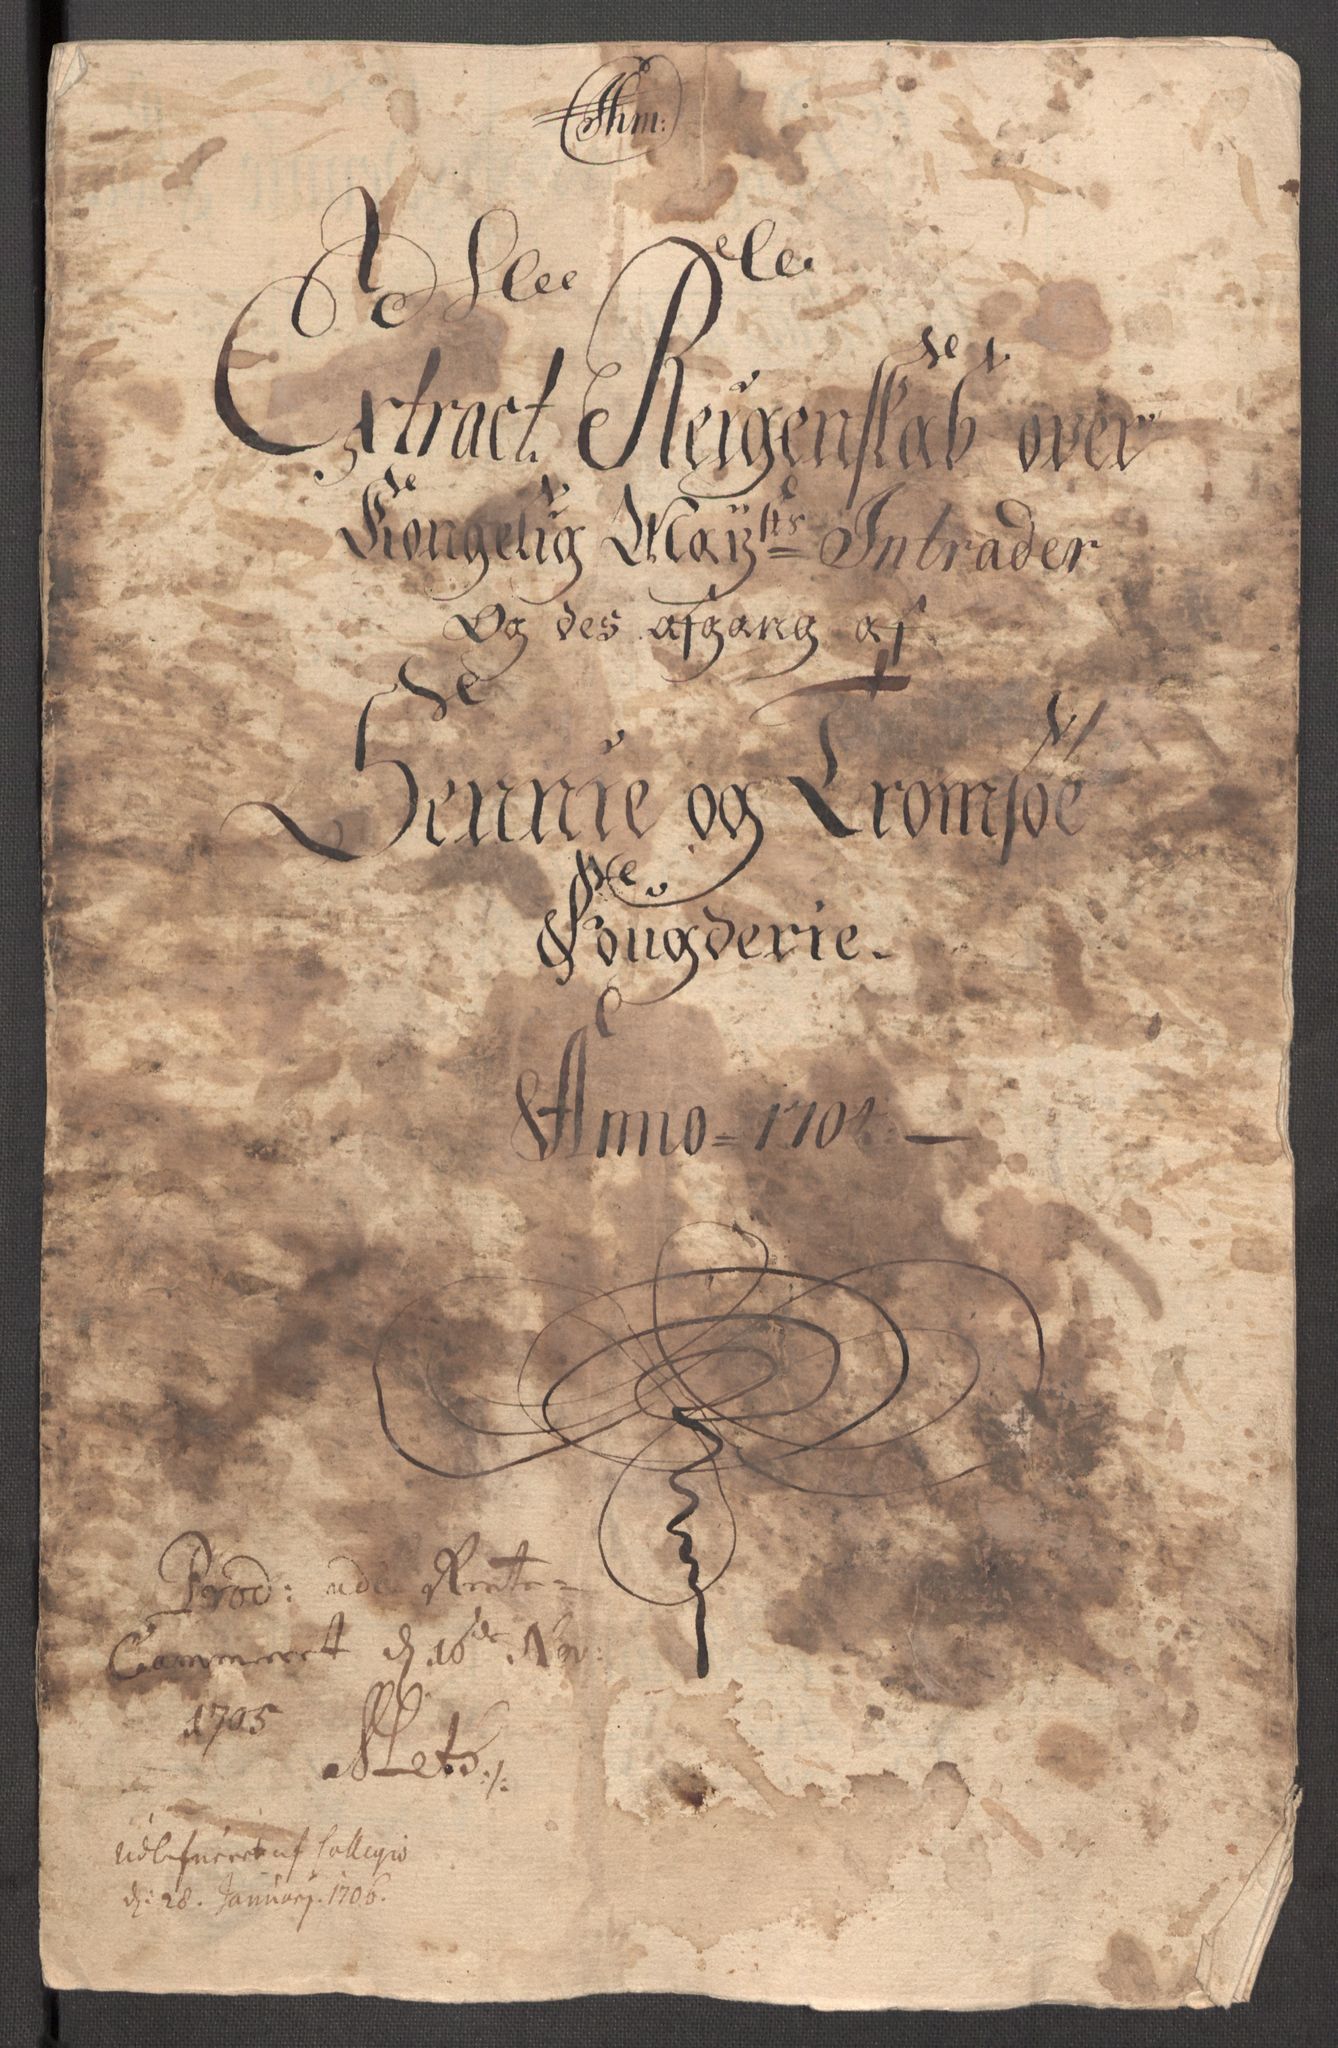 Extract Reigenskab over
Kongelig Maÿ:ts Intrader
Og des afgang af
Sennie og Tromsøe
Fougderie.
Anno = 1704.
Prod: udi Rente-
Cammeret d. 16de Nov:
1705
Udlefueret af Collegio
d: 28. Januarÿ. 1706.